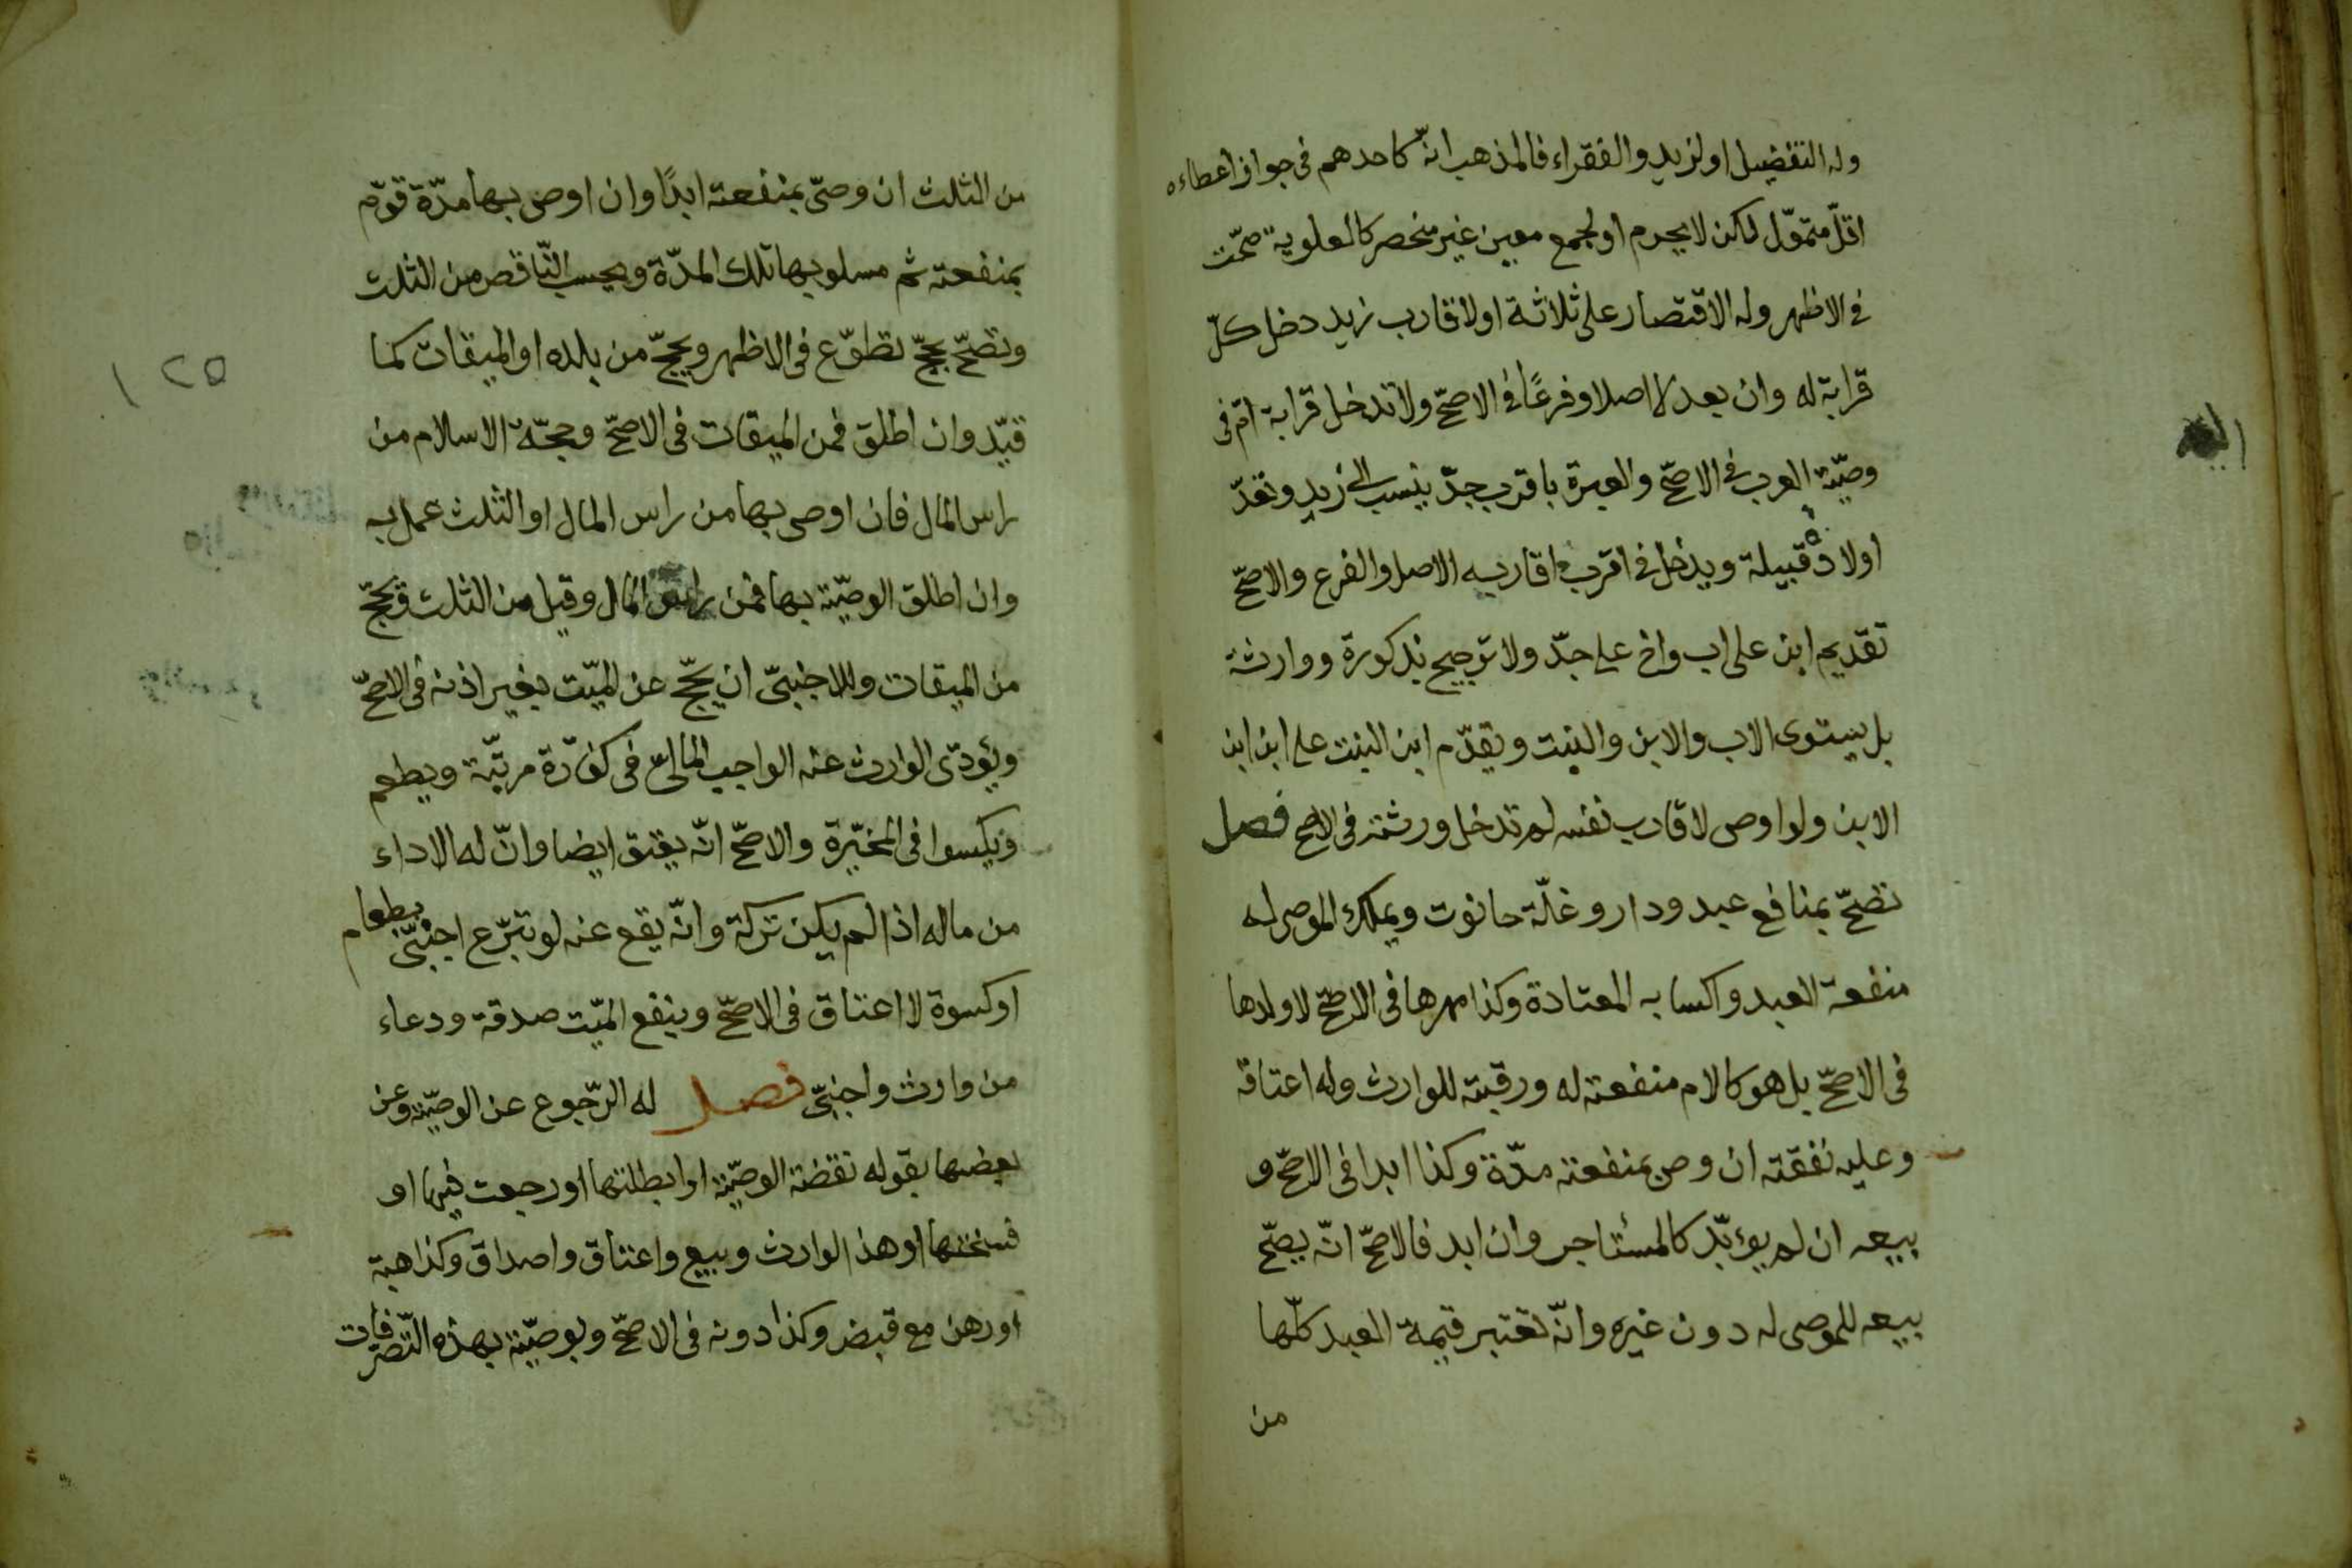 وله التفضيل او لزيد والفقراء فالمذهب انّه كاحدهم فى جواز اعطاءه
اقلّ متموّل لكن لا يحرم او لجمع معين غير منحصر كالعلوية صحّت
فى الاظهر وله الاقتصار على ثلاثة او لاقارب زيد دخل كلّ
قرابة له وان بعد لا اصلا وفرعًا فى الاصحّ ولا تدخل قرابة امّ فى
وصيّة العرب فى الاصحّ والعبرة باقرب جدّ ينسب الى زيد وتعدّ
اولاده قبيلة ويدخل فى اقرب اقاربه الاصل والفرع والاصحّ
تقديم ابن على اب واخ على جدّ ولا ترجيح بذكورة ووارثة
بل يستوى الاب والابن والبنت ويقدّم ابن البنت على ابن ابن
الابن ولو اوصى لاقارب نفسه لم تدخل ورثته فى الاصح فصل
تصحّ بمنافع عبد ودار وغلّة حانوت ويملك الموصى له
منفعة العبد واكسابه المعتادة وكذا مهرها فى الاصحّ لا ولدها
فى الاصحّ بل هو كالام منفعته له ورقبته للوارث وله اعتاقه
وعليه نفقته ان وصى بمنفعته مدّة وكذا ابدا فى الاصحّ و
بيعه ان لم يؤبّد كالمستأجر وان ابد فالاصحّ انّه يصحّ
بيعه للموصى له دون غيره وانّه تعتبر قيمة العبد كلّها
من
من الثلث ان وصّى بمنفعته ابدًا وان اوصى بها مدّة قوّم
بمنفعته ثم مسلوبها تلك المدّة ويحسب النّاقص من الثلث
وتصحّ بحجّ تطوّع فى الاظهر ويحجّ من بلده او الميقات كما
١٢٥
قيّد وان اطلق فمن الميقات فى الاصحّ وحجّة الاسلام من
راس المال فان اوصى بها من راس المال او الثلث عمل به
وان اطلق الوصيّة بها فمن راس المال وقيل من الثلث ويحجّ
من الميقات وللاجنبىّ ان يحجّ عن الميّت بغير اذنه فى الاصحّ
ويؤدّى الوارث عنه الواجب المالىّ فى كفّارة مرتّبة ويطعم
ويكسوا فى المخيّرة والاصحّ انّه يعتق ايضا وانّ له الاداء
من ماله اذا لم يكن تركة وانّه يقع عنه لو تبرّع اجنبىّ بطعام
او كسوة لا اعتاق فى الاصحّ وينفع الميّت صدقة ودعاء
من وارث واجنبىّ فصل له الرّجوع عن الوصيّة وعن
بعضها بقوله نقضة الوصيّة او ابطلتها او رجعت فيها او
فسختها او هذا لوارث وبيع واعتاق واصداق وكذا هبة
او رهن مع قبض وكذا دونه فى الاصحّ وبوصيّة بهذه التّصرّفات